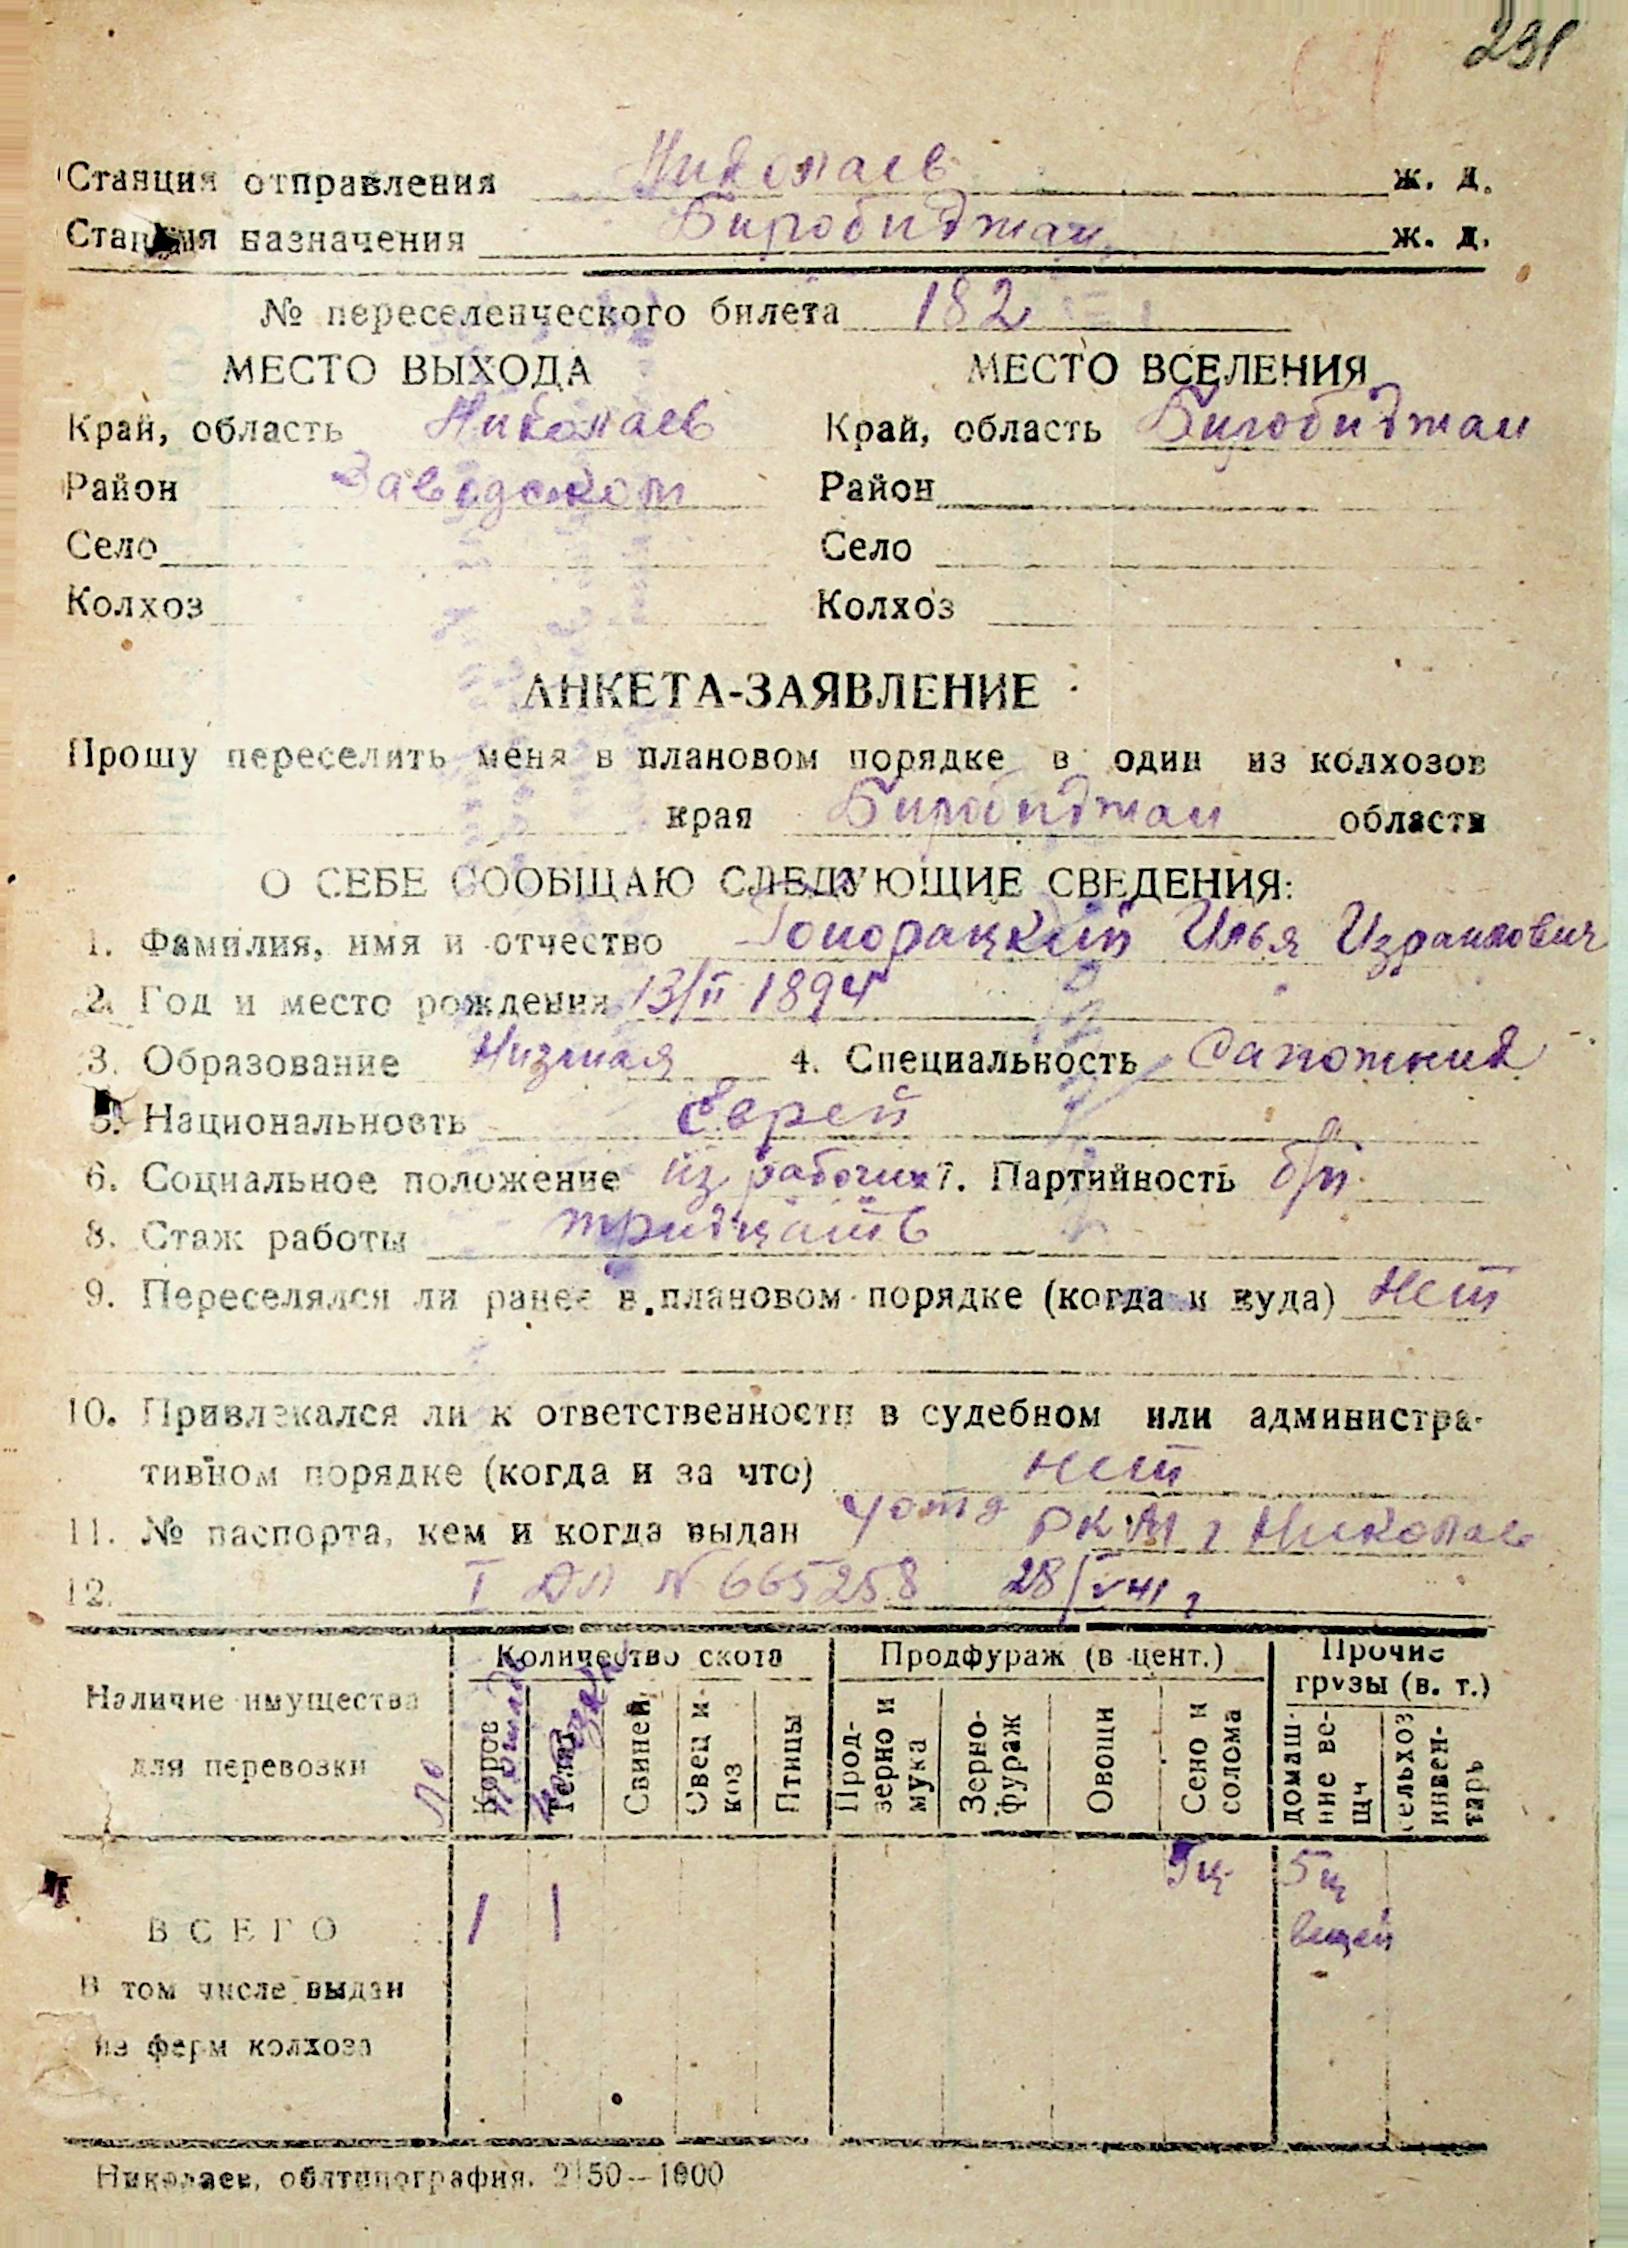 231
64
Станция отправления Николаев ж. д.
Станция назначения Биробиджан ж. д.
№ переселенческого билета 182
МЕСТО ВЫХОДА МЕСТО ВСЕЛЕНИЯ
Край, область Николаев Край, область Биробиджан
Район Заводской Район
Село Село
Колхоз Колхоз
АНКЕТА-ЗАЯВЛЕНИЕ
Прошу переселить меня в плановом порядке в один из колхозов
края Биробиджан области
О СЕБЕ СООБЩАЮ СЛЕДУЮЩИЕ СВЕДЕНИЯ:
1. Фамилия, имя и отчество Гонорацкий Илья Израилович
2. Год и место рождения 13/II 1894
3. Образование Низшая 4. Специальность Сапожник
5. Национальность Еврей
6. Социальное положение из рабочих 7. Партийность б/п.
8. Стаж работы тридцать
9. Переселялся ли ранее в плановом порядке (когда и куда) Нет
10. Привлекался ли к ответственности в судебном или администра-
тивном порядке (когда и за что) нет
11. № паспорта, кем и когда выдан 4 отд РКМ г Николаев
12. I ДЛ № 665258 28/V 41 г
Наличие имущества
для перевозки
Количество скота Продфураж (в цент.) Прочие
грузы (в. т.)
Коров Телят Свиней Овец и коз Птицы Прод-зерно и мука Зерно-фураж Овощи Сено и солома домаш-ние ве-щи сельхоз инвен-тарь
По
5ц 5ц
ВСЕГО 1 1 вещей
В том числе выдан
из ферм колхоза
Николаев, облтипография. 2150—1000